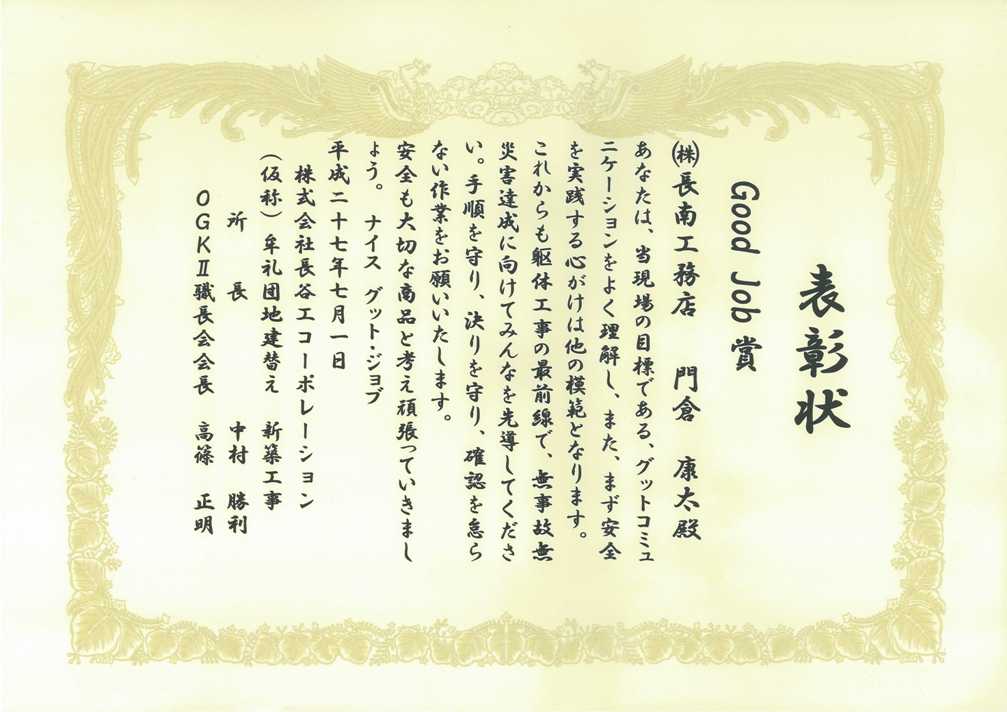 表彰状
Good Job賞
㈱長南工務店 門倉 康太殿
あなたは、当現場の目標である、グットコミュ
ニケーションをよく理解し、また、まず安全
を実践する心がけは他の模範となります。
これからも躯体工事の最前線で、無事故無
災害達成に向けてみんなを先導してくださ
い。手順を守り、決りを守り、確認を怠ら
ない作業をお願いいたします。
安全も大切な商品と考え頑張っていきまし
ょう。 ナイス グット・ジョブ
平成二十七年七月一日
株式会社長谷工コーポレーション
(仮称)牟礼団地建替え 新築工事
所長 中村 勝利
OGKⅡ職長会会長 高篠 正明